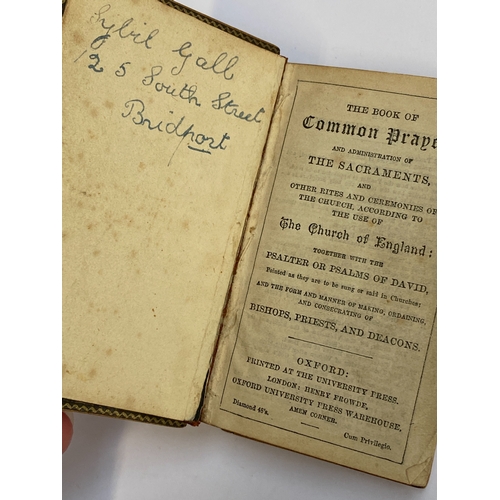 Sybil Gall
125 South Street
Bridport
THE BOOK OF
Common Praye
AND ADMINISTRATION OF
THE SACRAMENTS,
AND
OTHER RITES AND CEREMONIES OF
THE CHURCH, ACCORDING TO
THE USE OF
The Church of England:
TOGETHER WITH THE
PSALTER OR PSALMS OF DAVID,
Pointed as they are to be sung or said in Churches;
AND THE FORM AND MANNER OF MAKING, ORDAINING,
AND CONSECRATING OF
BISHOPS, PRIESTS, AND DEACONS.
OXFORD:
PRINTED AT THE UNIVERSITY PRESS.
LONDON: HENRY FROWDE,
OXFORD UNIVERSITY PRESS WAREHOUSE,
AMEN CORNER.
Diamond 48's.
Cum Privilegio.